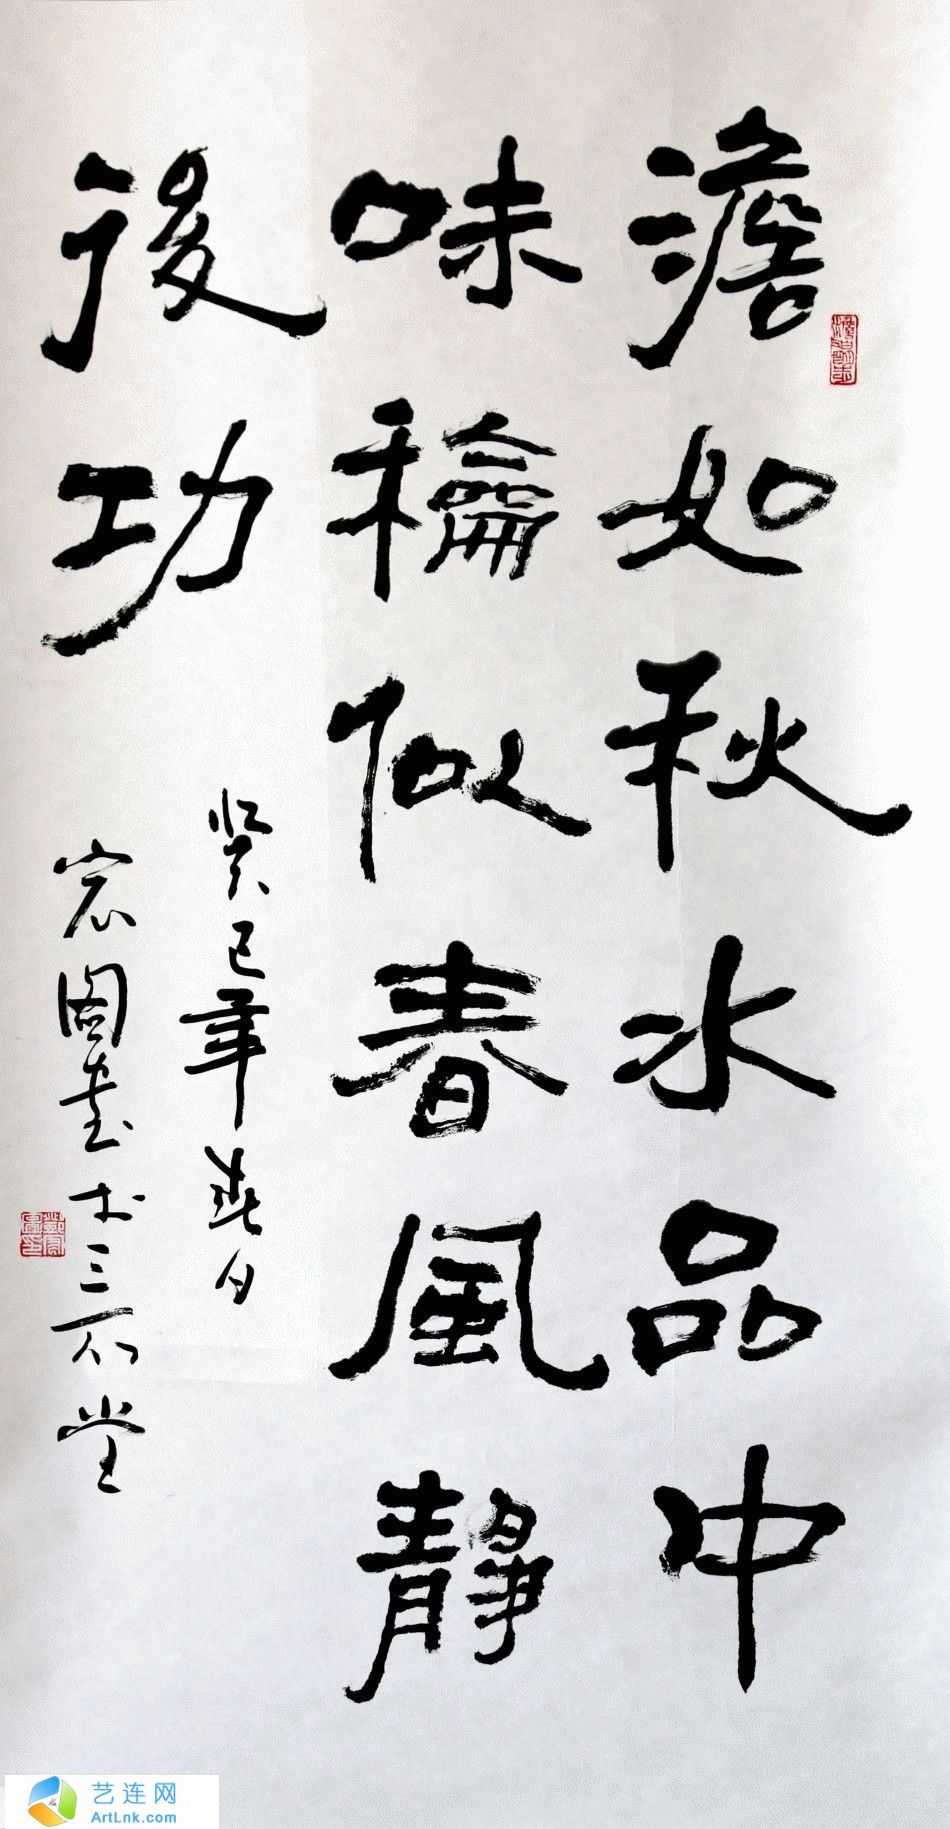 澹如秋水品中
味龢似春風靜
後功
癸巳年春月
宏圖書于三石堂
艺连网
ArtLnk.com